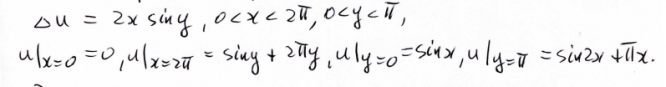 Δu = 2x siny, 0<x<2π, 0<y<π,
u|x=0 = 0, u|x=2π = siny + 2πy, u|y=0 = sinx, u|y=π = sin2x + πx.